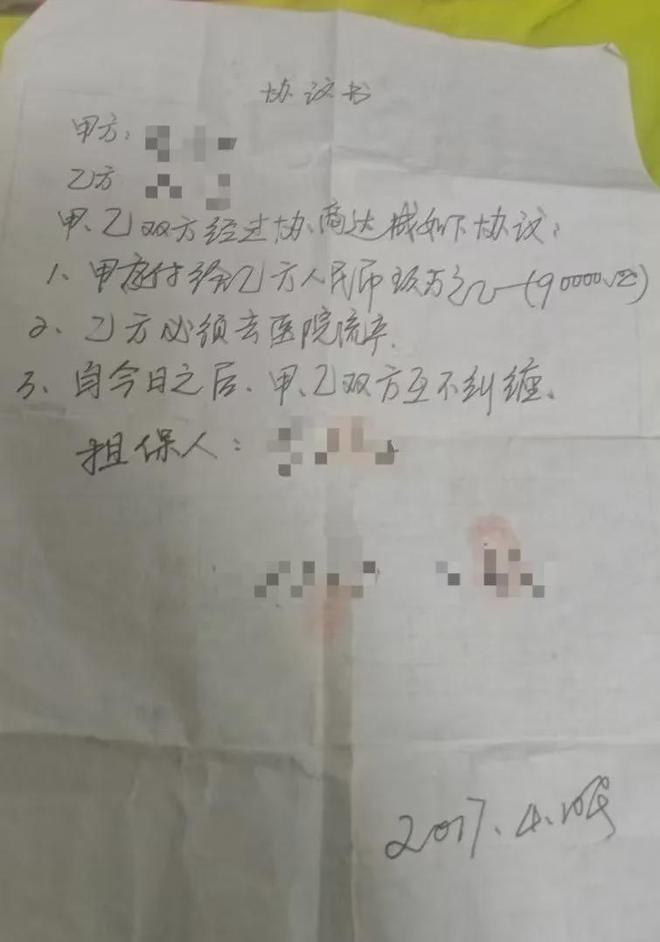 协议书
甲方:
乙方
甲、乙双方经过协商达成如下协议:
1、甲方付给乙方人民币玖万元(90000元)
2、乙方必须去医院流产.
3、自今日之后、甲、乙双方互不纠缠。
担保人:
2017.4.